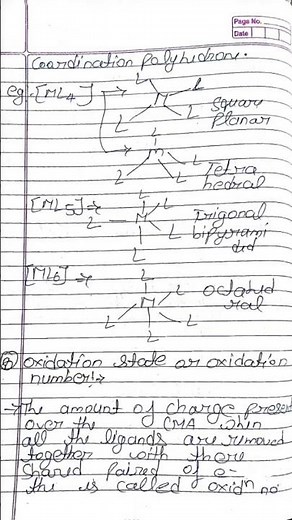 Page No.
Date
Coordination Polyhidron.
eg. [ML4] → L L
M
L L Square Planar
L
M
L L L Tetra hedral
[ML5] → L
L M L Trigonal
L L bipyrami ded
[ML6] → L
L L octahed ral
M
L L L
⑧ oxidation state or oxidation
number! →
→ The amount of charge present
over the CMA when
all the ligands are removed
together with there
shared paired of e-
the is called oxidn no